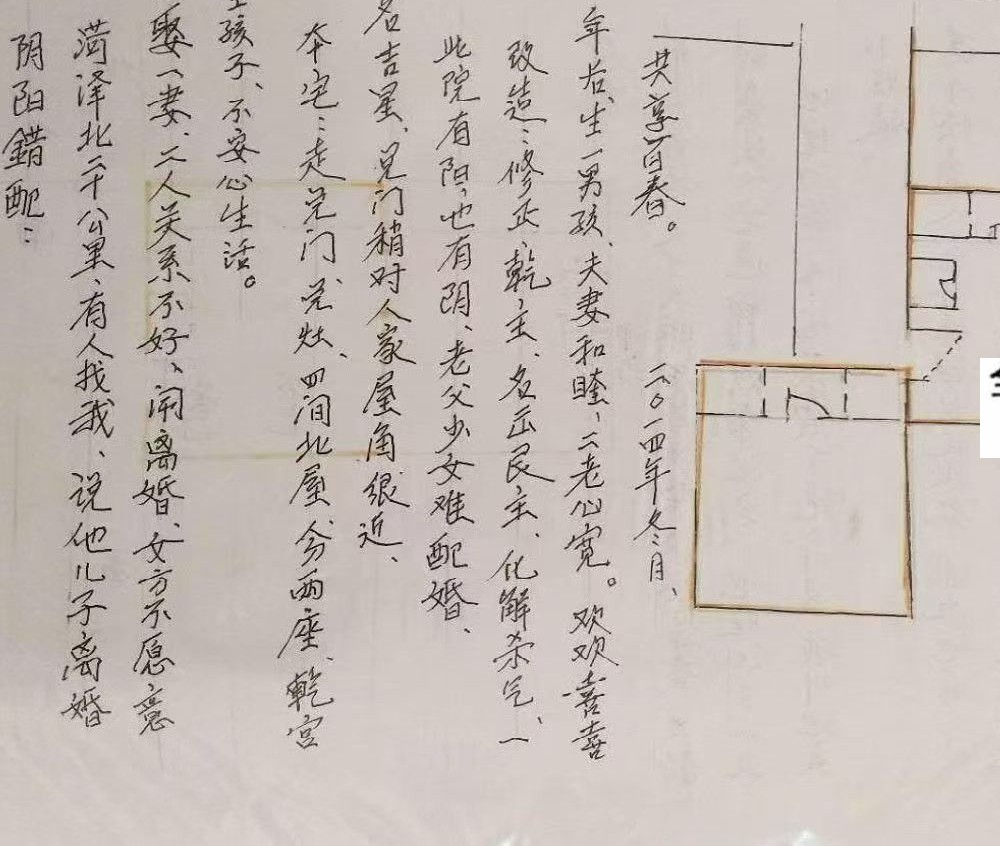 阴阳錯配：
菏泽北二十公里、有人找我、说他儿子离婚
娶一妻、二人关系不好、闹离婚、女方不愿意
生孩子、不安心生活。
本宅：走兑门、兑灶、四间北屋分两座、乾宫
名吉星、兑门稍对人家屋角很近、
此院有阳也有阴、老父少女难配婚、
改造：修正、乾主、名艮主、化解杀气、一
年后生一男孩、夫妻和睦、二老心宽。欢欢喜喜
共享百春。
二〇一四年冬月、